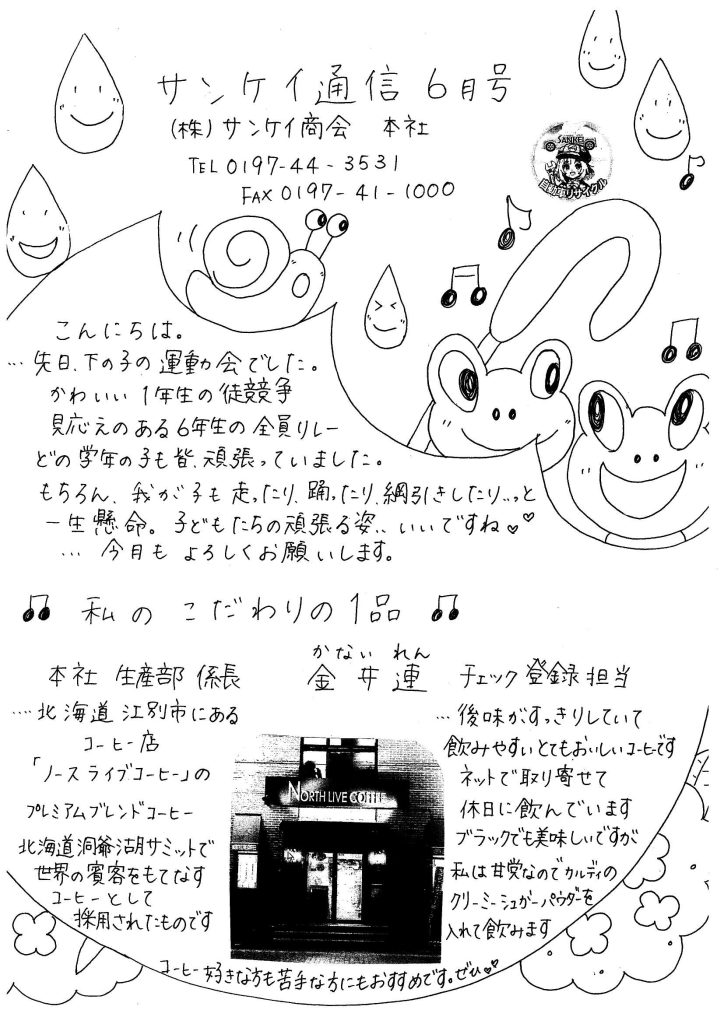 サンケイ通信 6月号
(株) サンケイ商会 本社
TEL 0197-44-3531
FAX 0197-41-1000
SANKEI
自動車リサイクル
こんにちは。
…先日、下の子の運動会でした。
かわいい 1年生の徒競争
見応えのある6年生の全員リレー
どの学年の子も皆、頑張っていました。
もちろん、我が子も走ったり、踊ったり、綱引きしたり…っと
一生懸命。子どもたちの頑張る姿… いいですね♡♡
… 今月もよろしくお願いします。
♫ 私の こだわりの1品 ♫
かない れん
本社 生産部 係長 金井 連 チェック登録担当
…北海道江別市にある
コーヒー店
「ノースライブコーヒー」の
プレミアムブレンドコーヒー
北海道洞爺湖サミットで
世界の賓客をもてなす
コーヒーとして
採用されたものです
NORTH LIVE COFFEE
…後味がすっきりしていて
飲みやすいとてもおいしいコーヒーです
ネットで取り寄せて
休日に飲んでいます
ブラックでも美味しいですが
私は甘党なのでカルディの
クリーミーシュガーパウダーを
入れて飲みます
コーヒー好きな方も苦手な方にもおすすめです。ぜひ♡♡